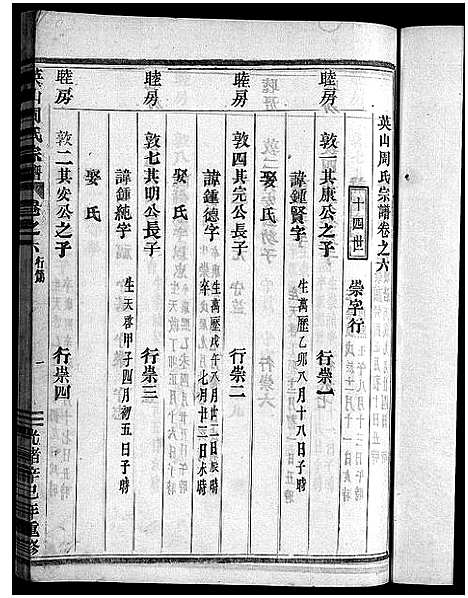 英山周氏宗譜卷之六
十四世
崇字行
睦房
敦一其康公之子
行崇一
諱鍾賢字
生萬曆乙卯八月十八日子時
娶 氏
睦房
敦四其完公長子
行崇二
諱鍾德字
生萬曆戊午八月廿二日辰時
卒 七月廿三日未時
娶 氏
睦房
敦七其明公長子
行崇三
諱鍾純字
生天啓甲子四月初五日子時
娶 氏
睦房
敦二其安公之子
行崇四
英山周氏宗譜
卷之六 行傳
一
光緒辛巳年重修